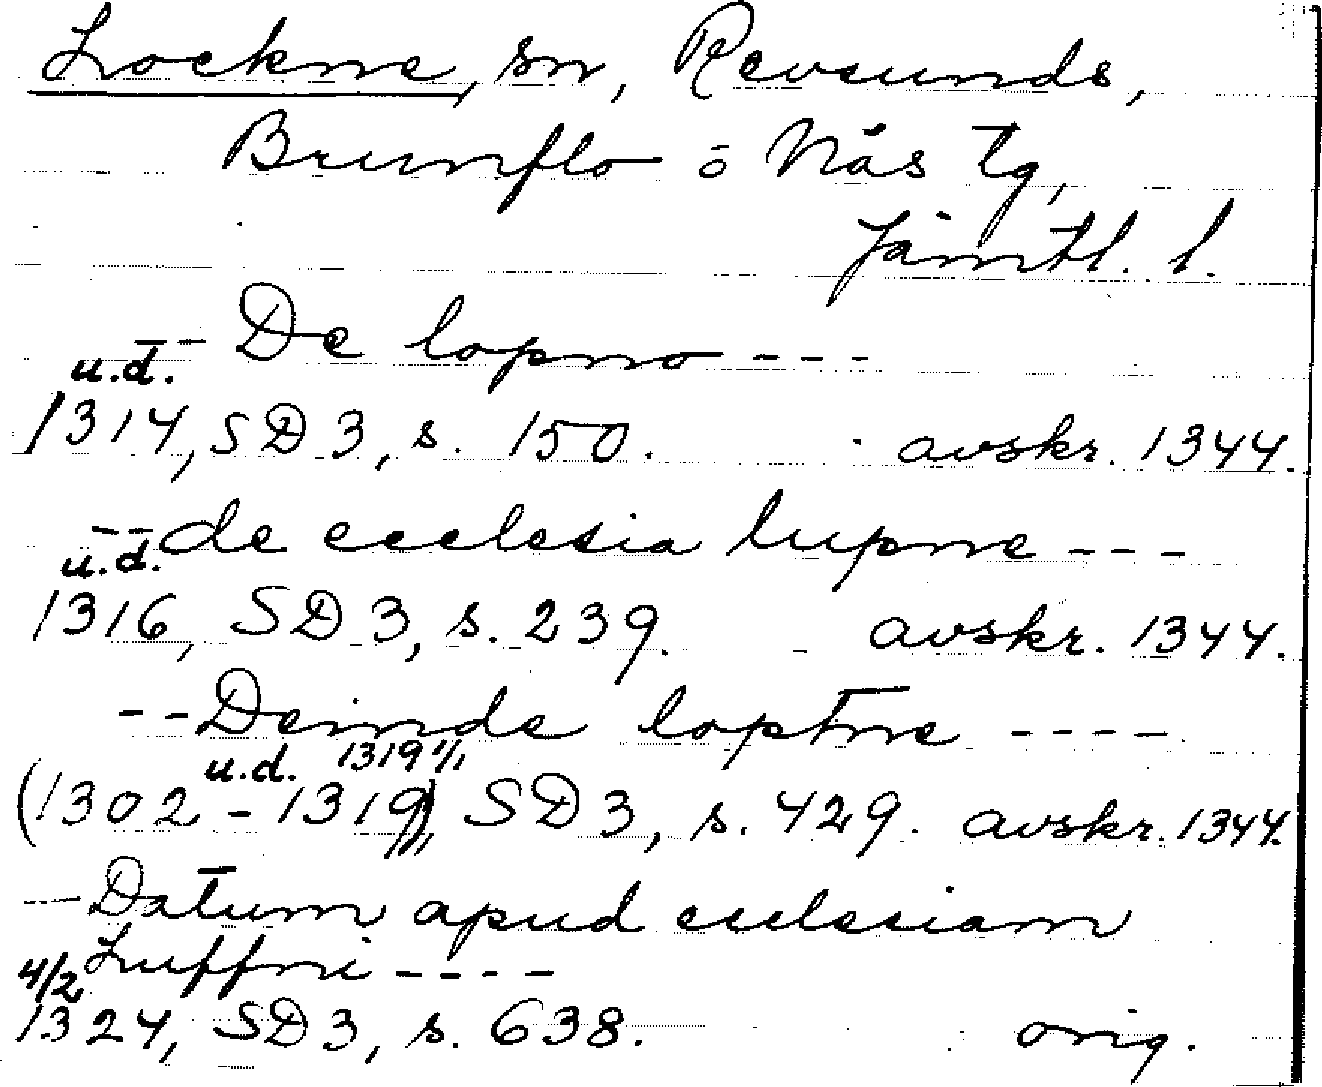 Lockne, sn, Revsunds,
Brunflo o Näs tg,
Jämtl. l.
-- De lopno ---
u.d.
1314, SD 3, s. 150. avskr. 1344.
-- de ecclesia lupne ---
u.d.
1316, SD 3, s. 239. avskr. 1344.
-- Deinde loptne ----
u.d. 1319 1/1
(1302 - 1319), SD 3, s. 429. avskr. 1344.
-- Datum apud ecclesiam
Luffni ----
4/2
1324, SD 3, s. 638. orig.